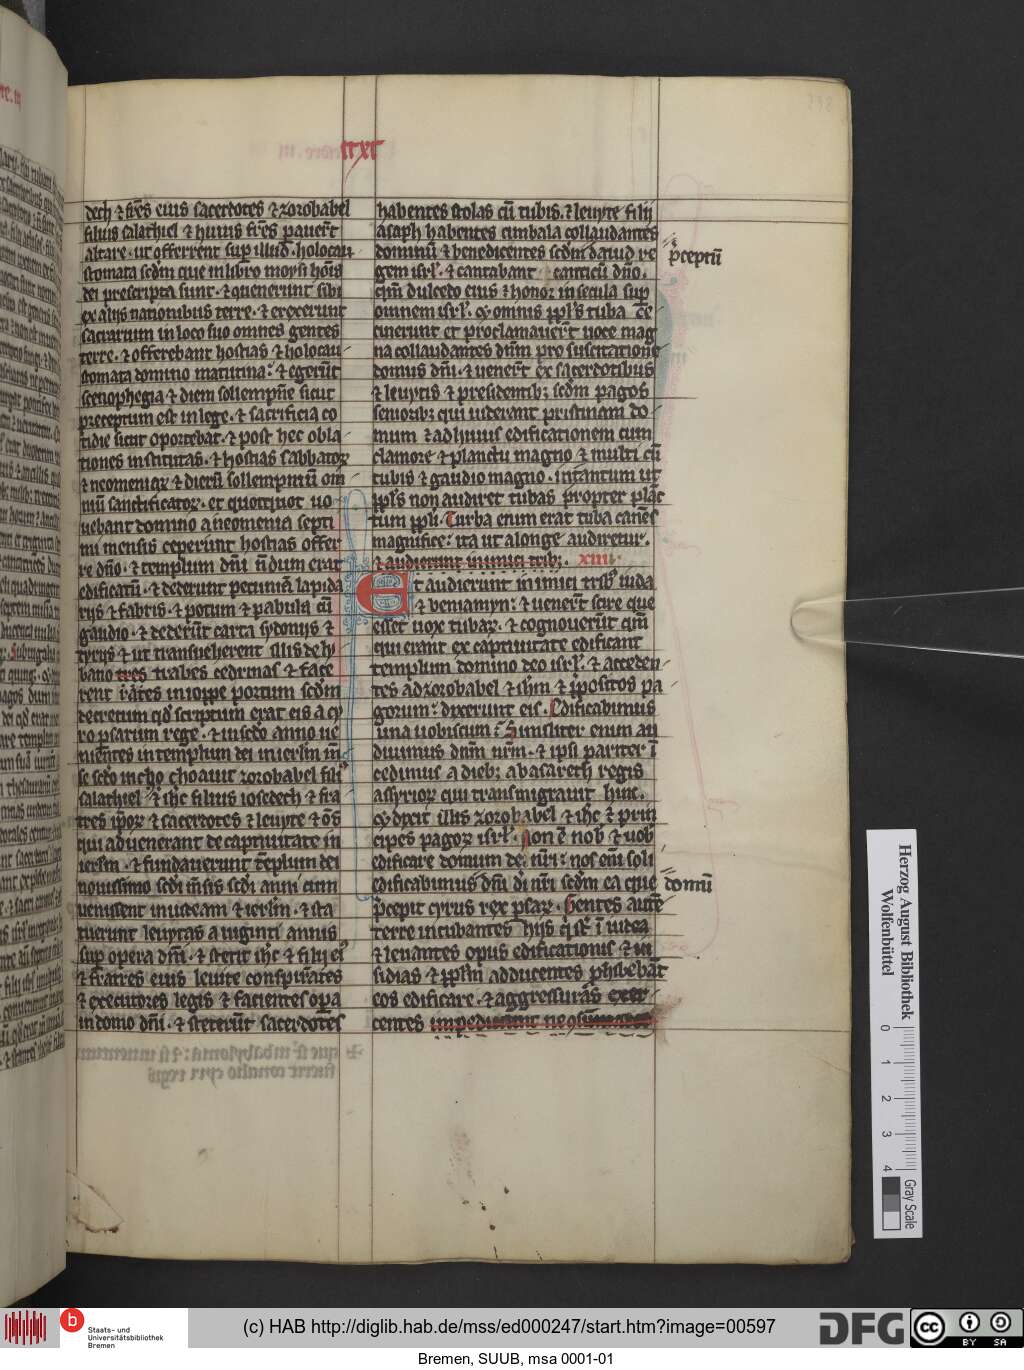 dech ⁊ fr̄es eius sacerdotes ⁊ zorobabel
filius salathiel ⁊ huius fr̄es ꝑauer̄t
altare · ut offerrent suꝑ illud · holocau
stomata scdm que in libro moysi hōis
dei prescripta sunt · ⁊ quenerunt sibi
ex alijs nationibus terre · ⁊ erexerunt
sacrarium in loco suo omnes gentes
terre · ⁊ offerebant hostias ⁊ holocau
stomata domino matutina : ⁊ egerūt
scenophegia ⁊ diem sollempne sicut
preceptum est in lege · ⁊ sacrificia co
tidie sicut oportebat · ⁊ post hec obla
tiones institutas · ⁊ hostias sabbatoꝝ
⁊ neomeniaꝝ ⁊ dierū sollempniū om
niū sanctificatoꝝ · et quotquot uo
uebant domino a neomenia septi
mi mensis ceperunt hostias offer
re dn̄o · ⁊ templum dn̄i n̄dum erat
edificatū · ⁊ dederunt pecuniā lapida
rijs ⁊ fabris · ⁊ potum ⁊ pabula cū
gaudio · ⁊ dederūt carta sydonijs ⁊
tyrijs ⁊ ut transueherent illis de ly
bano tres trabes cedrinas ⁊ face
rent rates in ioppe portum scdm
decretum qd scriptum erat eis a cy
ro psarum rege · ⁊ in scdo anno ue
nientes in templum dei in ierlm mn̄
se scdo incho choauit zorobabel fili
salathiel ⁊ ih̄c filius iosedech ⁊ fra
tres ip̄oꝝ ⁊ sacerdotes ⁊ leuyte ⁊ om̄s
qui aduenerant de captiuitate in
ierlm · ⁊ fundauerunt tēplum dei
nouissimo scdi mn̄sis scdi anni cum
uenissent in iudeam ⁊ ierlm · ⁊ sta
tuerunt leuytas a uiginti annis
suꝑ opera dn̄i · ⁊ stetit ih̄c ⁊ filij ei
⁊ fratres eius leuite conspirātes
⁊ executores legis ⁊ facientes oꝑa
in domo dn̄i · ⁊ steterūt sacerdotes
rxr
habentes stolas cū tubis · ⁊ leuyte filij
asaph habentes cimbala collaudantes
dominū ⁊ benedicentes scdm dauid re
gem isrl · ⁊ cantabant canticū dn̄o ·
qm̄ dulcedo eius ⁊ honor in secula suꝑ
omnem isrl · ⁊ omnis ppls tuba ce
cinerunt et proclamauer̄t uoce mag
na collaudantes dn̄m pro suscitatione
domus dn̄i · ⁊ uener̄t ex sacerdotibus
⁊ leuytis ⁊ presidentib; scdm pagos
seniorib; qui uiderant pristinam do
mum ⁊ ad huius edificationem cum
clamore ⁊ planctu magno ⁊ multi cū
tubis ⁊ gaudio magno · intantum ut
ppls non audiret tubas propter plāc
tum ppli · Turba enim erat tuba canēs
magnifice : ita ut a longe audiretur ·
⁊ audierunt inimici trib; · xiii
Et audierunt inimici trib iuda
⁊ beniamyn : ⁊ uener̄t scire que
esset uox tubaꝝ · ⁊ cognouerūt qm̄
qui erant ex captiuitate edificant
templum domino deo isrl · ⁊ acceden
tes ad zorobabel ⁊ ih̄m ⁊ p̄positos pa
gorum : dixerunt eis · Edificabimus
una uobiscum : Similiter enim au
diuimus dn̄m nr̄m · ⁊ ipsi pariter ī
cedimus a dieb; abasareth regis
assyrioꝝ qui transmigrauit huc ·
⁊ dixit illis zorobabel ⁊ ih̄c ⁊ prin
cipes pagoꝝ isrl · Non ē nob ⁊ uob
edificare domum dei nr̄i : nos eni soli
edificabimus dn̄i di nr̄i scdm ea que
p̄cepit cyrus rex psaꝝ · Gentes aute
terre incubantes hijs q̄ sūt ī iudea
⁊ leuantes opus edificationis ⁊ in
sidias ⁊ pplm adducentes ꝓhibebāt
eos edificare · ⁊ aggressurās exer
centes impedierunt
ꝓceptū
domū
Herzog August Bibliothek
Wolfenbüttel
0 1 2 3 4
Gray Scale
Staats- und
Universitätsbibliothek
Bremen
(c) HAB http://diglib.hab.de/mss/ed000247/start.htm?image=00597
DFG
cc BY SA
Bremen, SUUB, msa 0001-01